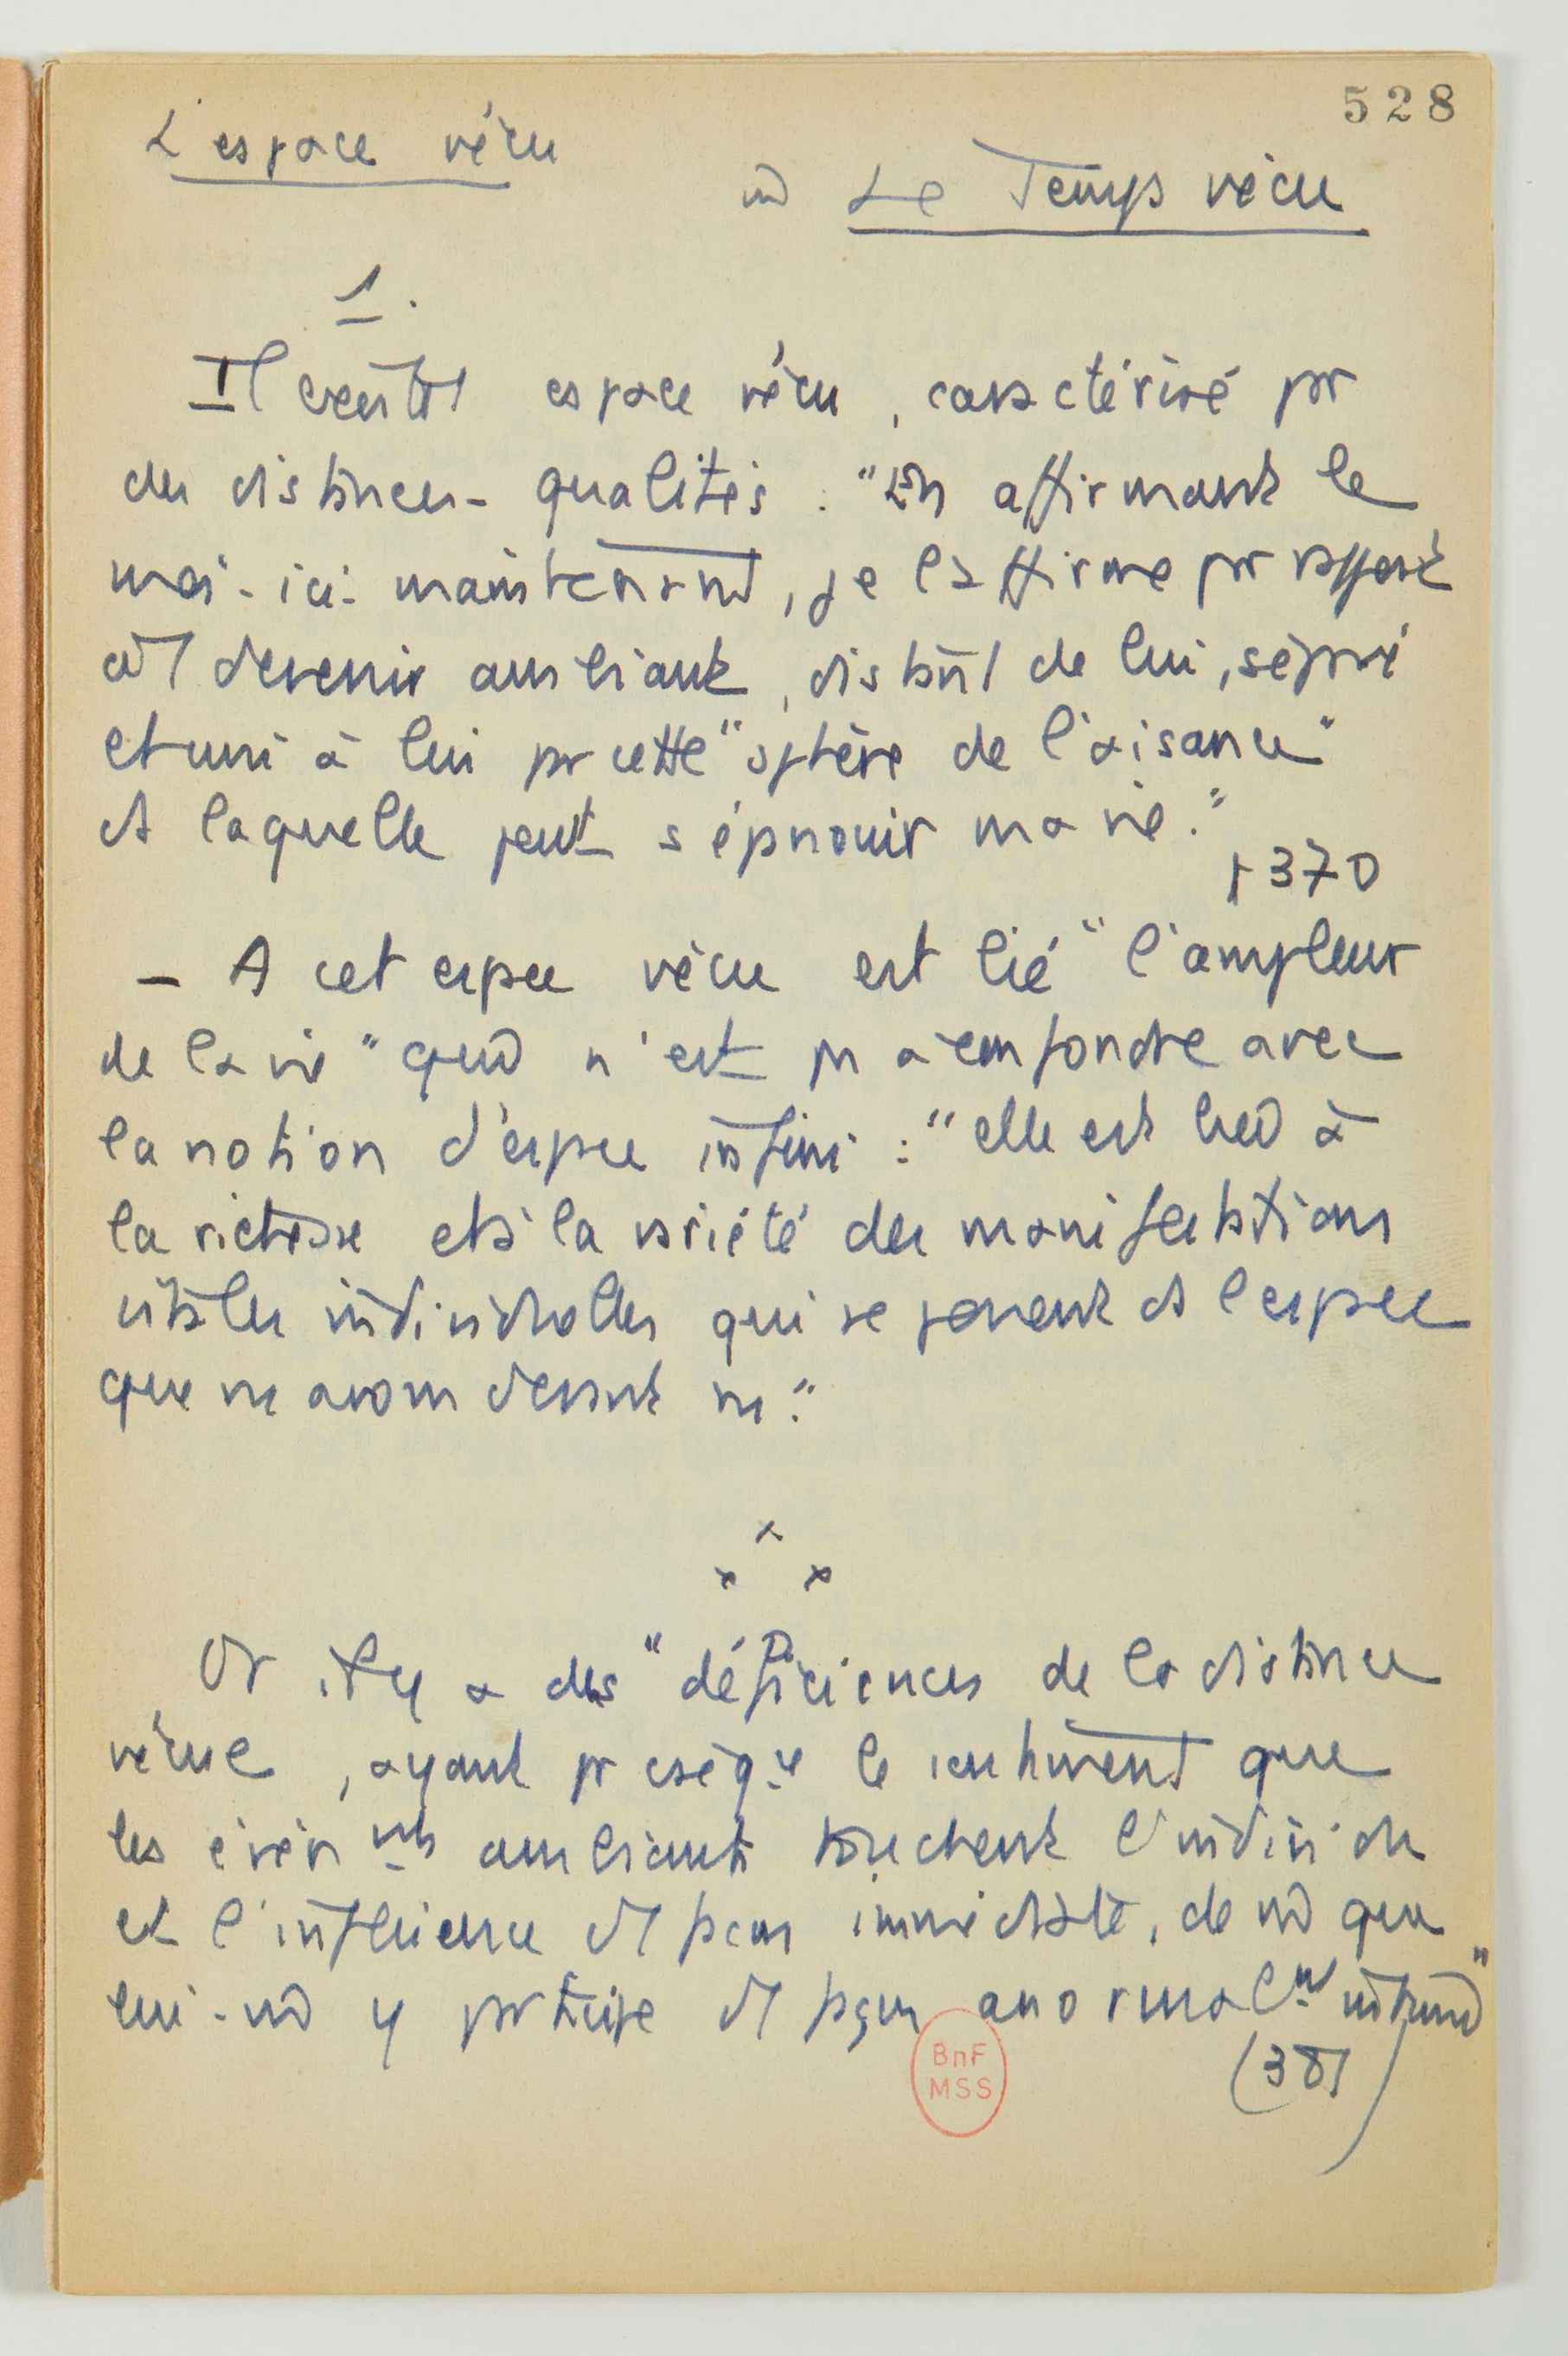 528
L'espace vécu
in Le Temps vécu
1.
Il existe 1 espace vécu, caractérisé par
des distances-qualités : "En affirmant le
moi-ici-maintenant, je l'affirme par rapport
au devenir ambiant, distinct de lui, séparé
et uni à lui par cette "sphère de l'aisance"
ds laquelle peut s'épanouir ma vie."
p 370
– A cet espace vécu est lié "l'ampleur
de la vie" qui n'est pas à confondre avec
la notion d'espace infini : "elle est liée à
la richesse et à la variété des manifestations
vitales individuelles qui se  ds l'espace
que ns avons devant ns."
x
x x
Or il y a des "déficiences de la distance
vécue, ayant pr conséq. le sentiment que
les évén mts ambiants touchent l'individu
et l'influence d'1 façon immédiate, de m que
lui-m y participe d'1 façon anormalmt intime"
(381)
BnF
MSS